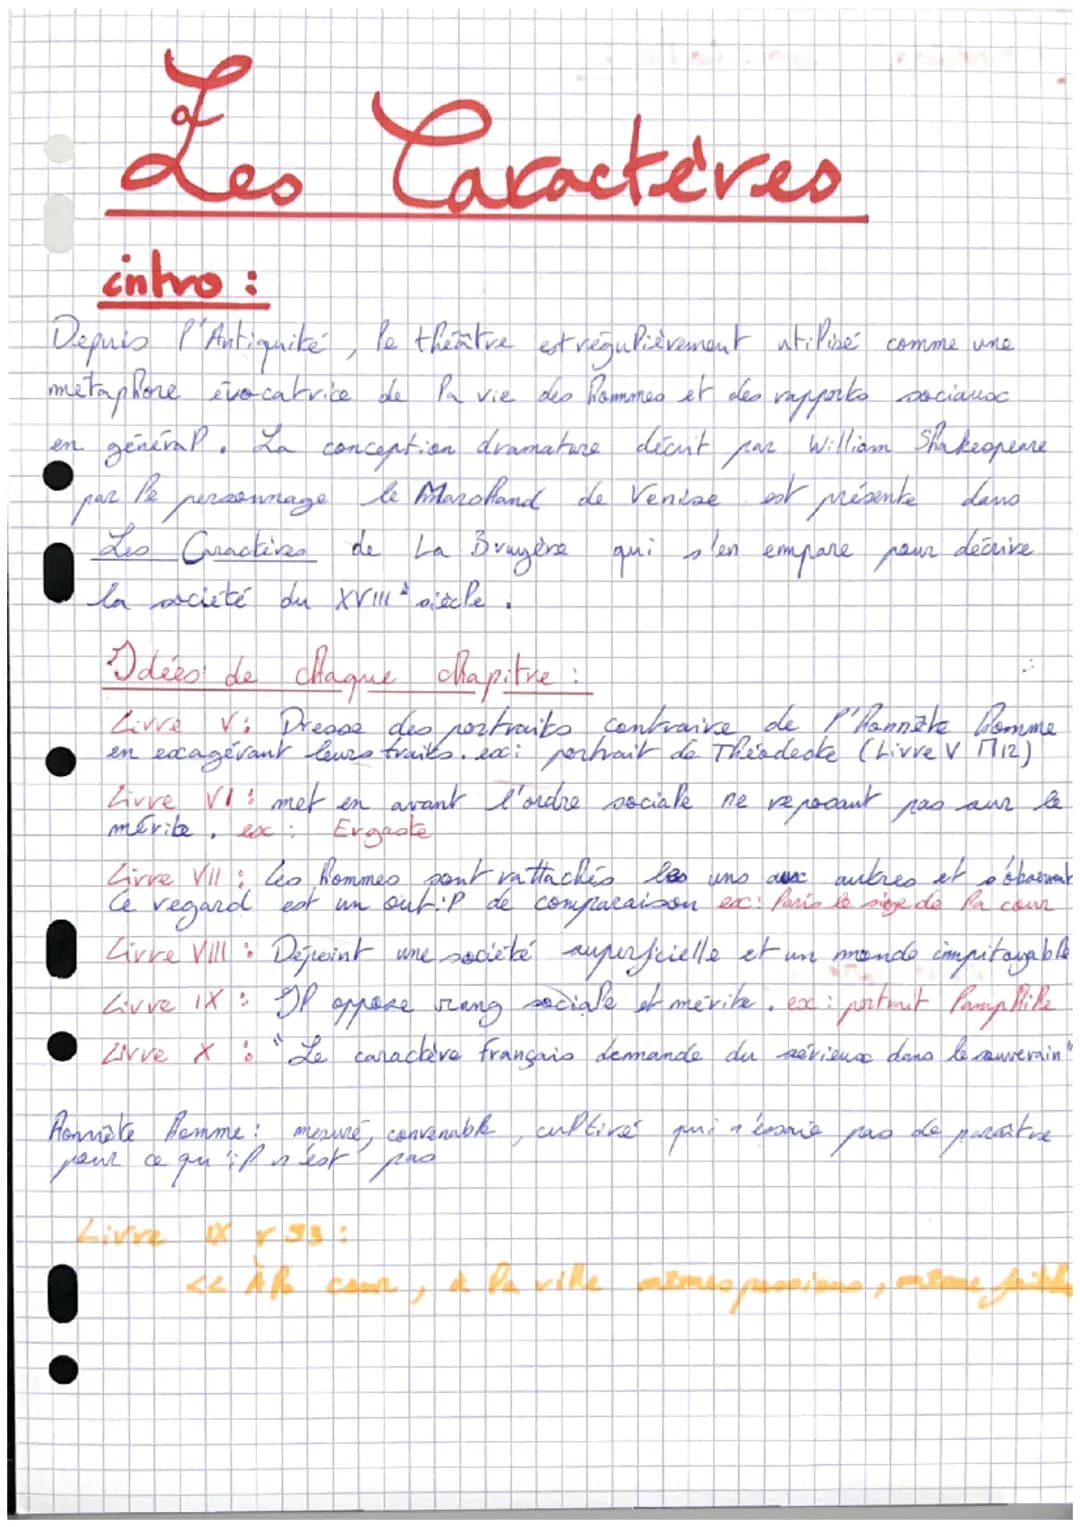 Les Caractères
intro :
Depuis l'Antiquité, le théâtre est régulièrement utilisé comme une
métaphore évocatrice de la vie des hommes et des rapports sociaux
en général. La conception dramature décrit par William Shakespeare
par le personnage le Marchand de Venise est présente dans
Les Caractères de La Bruyère qui s'en empare pour décrire
la société du XVIIIè siècle.
Idées de chaque chapitre :
Livre V : Dresse des portraits contraire de l'Honnête homme
en exagérant leurs traits. ex : portrait de Théodecte (Livre V 12)
Livre VI : met en avant l'ordre sociale ne reposant pas sur le
mérite. ex : Ergaste
Livre VII : les hommes sont rattachés les uns aux autres et s'observent
Ce regard est un outil de comparaison ex : Paris le singe de la cour
Livre VIII : Dépeint une société superficielle et un monde impitoyable
Livre IX : Il oppose rang sociale et mérite. ex : portrait Pamphile
Livre X : "Le caractère français demande du sérieux dans le souverain"
Honnête homme : mesuré, convenable, cultivé qui n'essaie pas de paraître
pour ce qu'il n'est pas
Livre IX r 53 :
<< À la cour, à la ville mêmes passions, même faible